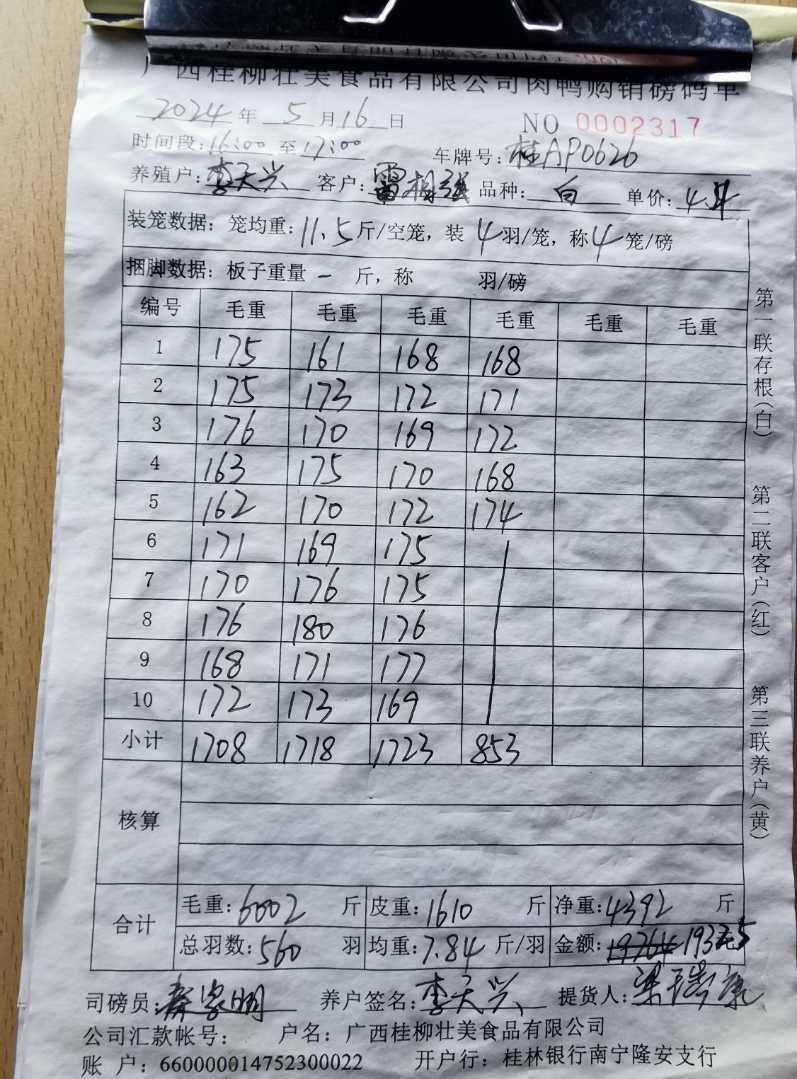 广西桂柳壮美食品有限公司肉鸭购销磅码单
2024年 5月16日 NO 0002317
时间段:16:00至17:00 车牌号:桂AP0626
养殖户:李天兴 客户:雷相强 品种:白 单价:4.4
装笼数据: 笼均重:11.5斤/空笼, 装4羽/笼, 称4笼/磅
捆脚数据: 板子重量 一 斤, 称 羽/磅
编号 毛重 毛重 毛重 毛重 毛重 毛重
1 175 161 168 168
2 175 173 172 171
3 176 170 169 172
4 163 175 170 168
5 162 170 172 174
6 171 169 175
7 170 176 175
8 176 180 176
9 168 171 177
10 172 173 169
小计 1708 1718 1723 853
核算
合计 毛重:6002 斤 皮重:1610 斤 净重:4392 斤
总羽数:560 羽 均重:7.84 斤/羽 金额:19764 19325
司磅员: 养户签名:李天兴 提货人:
公司汇款帐号: 户名:广西桂柳壮美食品有限公司
账 户:660000014752300022 开户行:桂林银行南宁隆安支行
第一联存根(白)
第二联客户(红)
第三联养户(黄)